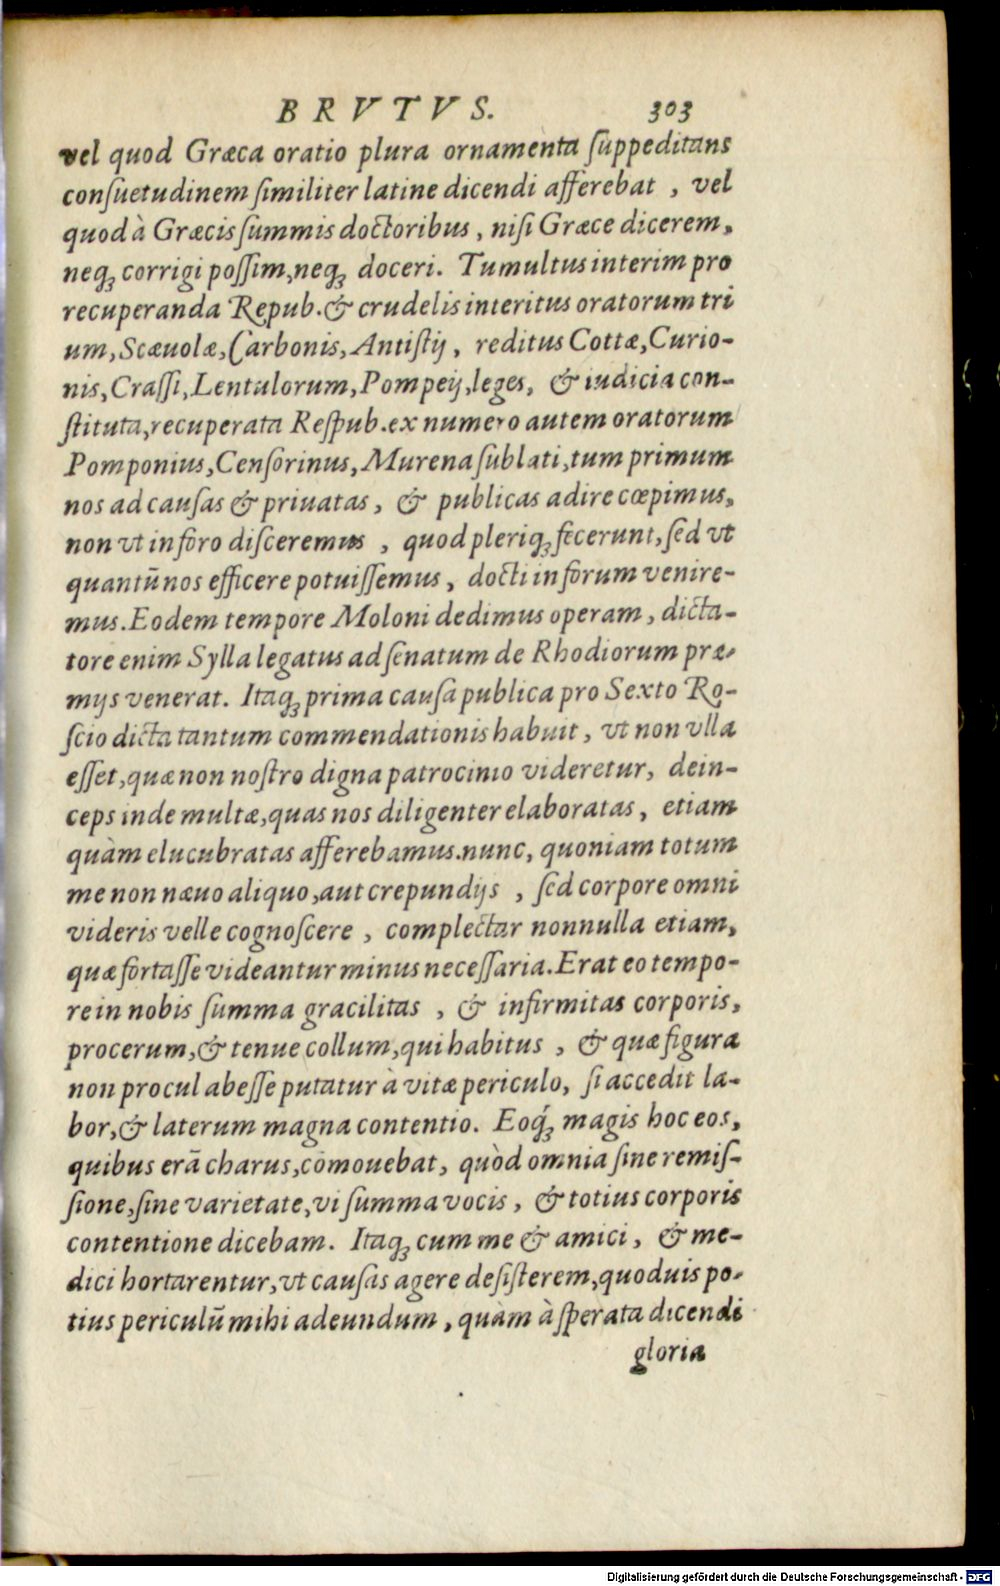 BRVTVS. 303
vel quod Græca oratio plura ornamenta ſuppeditans
conſuetudinem ſimiliter latine dicendi afferebat , vel
quod à Græcis ſummis doctoribus , niſi Græce dicerem,
neqꝫ corrigi poſſim,neqꝫ doceri. Tumultus interim pro
recuperanda Repub.& crudelis interitus oratorum tri
um,Scæuolæ,Carbonis,Antiſtij, reditus Cottæ,Curio-
nis,Craſſi,Lentulorum,Pompeij,leges, & iudicia con-
ſtituta,recuperata Reſpub.ex numero autem oratorum
Pomponius,Cenſorinus,Murena ſublati,tum primum
nos ad cauſas & priuatas, & publicas adire cœpimus,
non vt in foro diſceremus , quod pleriqꝫ fecerunt,ſed vt
quantũ nos efficere potuiſſemus, docti in forum venire-
mus.Eodem tempore Moloni dedimus operam, dicta-
tore enim Sylla legatus ad ſenatum de Rhodiorum præ-
mijs venerat. Itaqꝫ prima cauſa publica pro Sexto Ro-
ſcio dicta tantum commendationis habuit, vt non vlla
eſſet,quæ non noſtro digna patrocinio videretur, dein-
ceps inde multæ,quas nos diligenter elaboratas, etiam
quàm elucubratas afferebamus.nunc, quoniam totum
me non næuo aliquo,aut crepundijs , ſed corpore omni
videris velle cognoſcere , complectar nonnulla etiam,
quæ fortaſſe videantur minus neceſſaria.Erat eo tempo-
re in nobis ſumma gracilitas , & infirmitas corporis,
procerum,& tenue collum,qui habitus , & quæ figura
non procul abeſſe putatur à vitæ periculo, ſi accedit la-
bor,& laterum magna contentio. Eoqꝫ́ magis hoc eos,
quibus erã charus,cõmouebat, quòd omnia ſine remiſ-
ſione,ſine varietate,vi ſumma vocis, & totius corporis
contentione dicebam. Itaqꝫ cum me & amici, & me-
dici hortarentur,vt cauſas agere deſiſterem,quoduis po-
tius periculũ mihi adeundum, quàm à ſperata dicendi
gloria
Digitalisierung gefördert durch die Deutsche Forschungsgemeinschaft - DFG